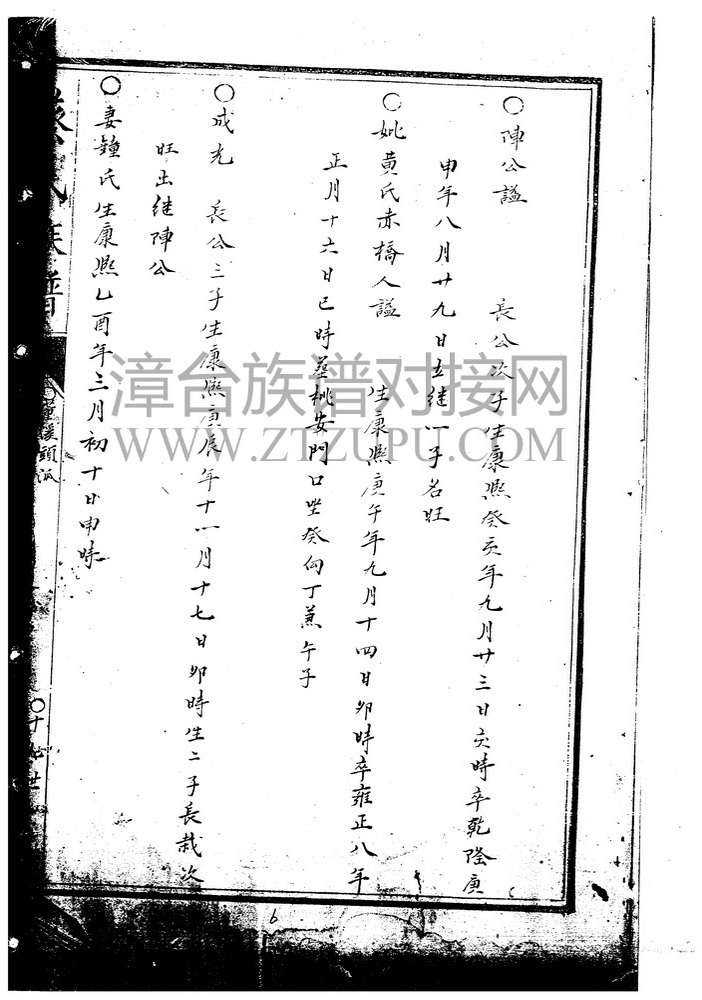 ○陣公謚　　長公次子生康熙癸亥年九月廿三日亥時卒乾隆庚
申年八月廿九日立继一子名旺
○妣黃氏赤橋人謚　　生康熙庚午年九月十四日卯時卒雍正八年
正月十六日巳時葬桃安門口坐癸向丁兼午子
○成光　長公三子生康熙庚辰年十一月十七日卯時生二子長栽次
旺出继陣公
○妻鍾氏生康熙乙酉年三月初十日申時
氏族譜
頭派
○十九世
漳台族谱对接网
WWW.ZTZUPU.COM
6